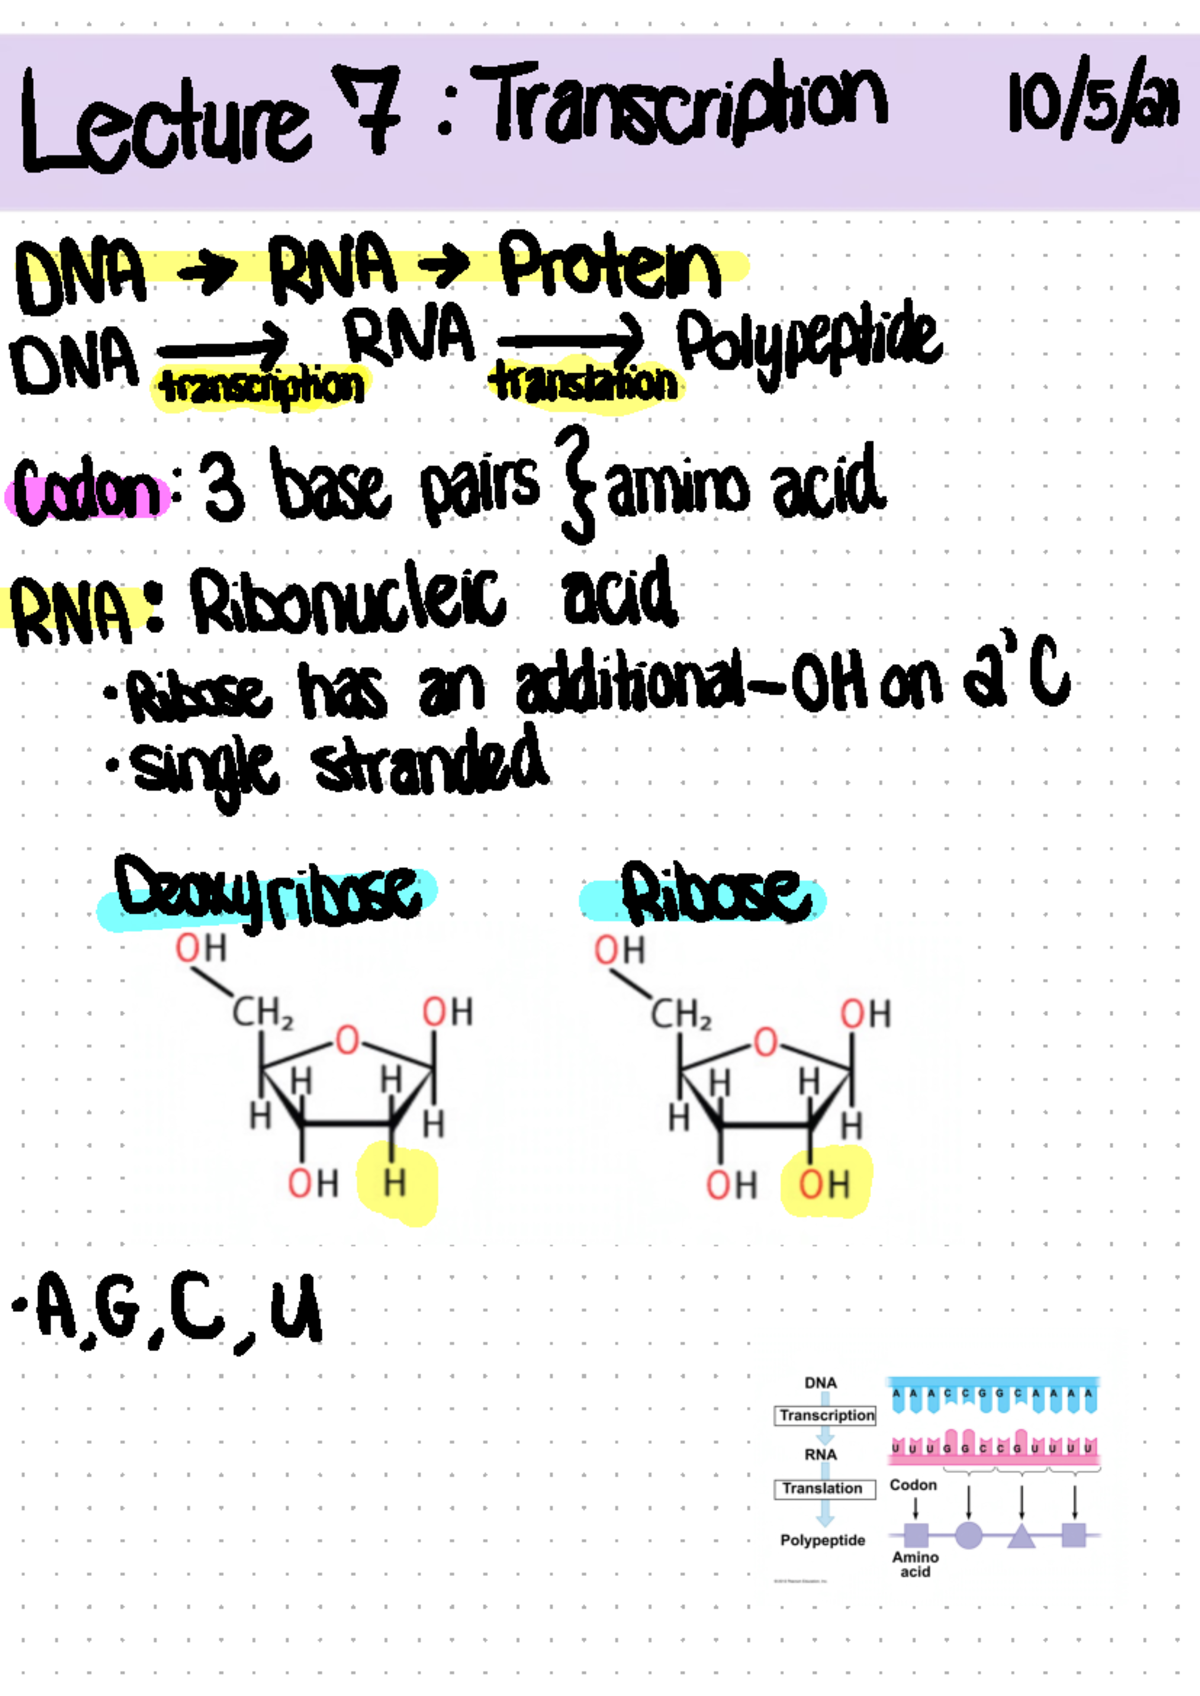 Lecture 7 : Transcription 10/5/21
DNA → RNA → Protein
DNA → RNA → Polypeptide
transcription translation
Codon: 3 base pairs } amino acid
RNA: Ribonucleic acid
• Ribose has an additional -OH on 2'C
• single stranded
Deoxyribose Ribose
OH
CH₂
OH
O
H
H
H
H
OH
H
OH
CH₂
OH
O
H
H
H
H
OH
OH
• A, G, C, U
DNA
Transcription
RNA
Translation
Polypeptide
A A A C C G G C A A A A
U U U G G C C G U U U U
Codon
Amino
acid